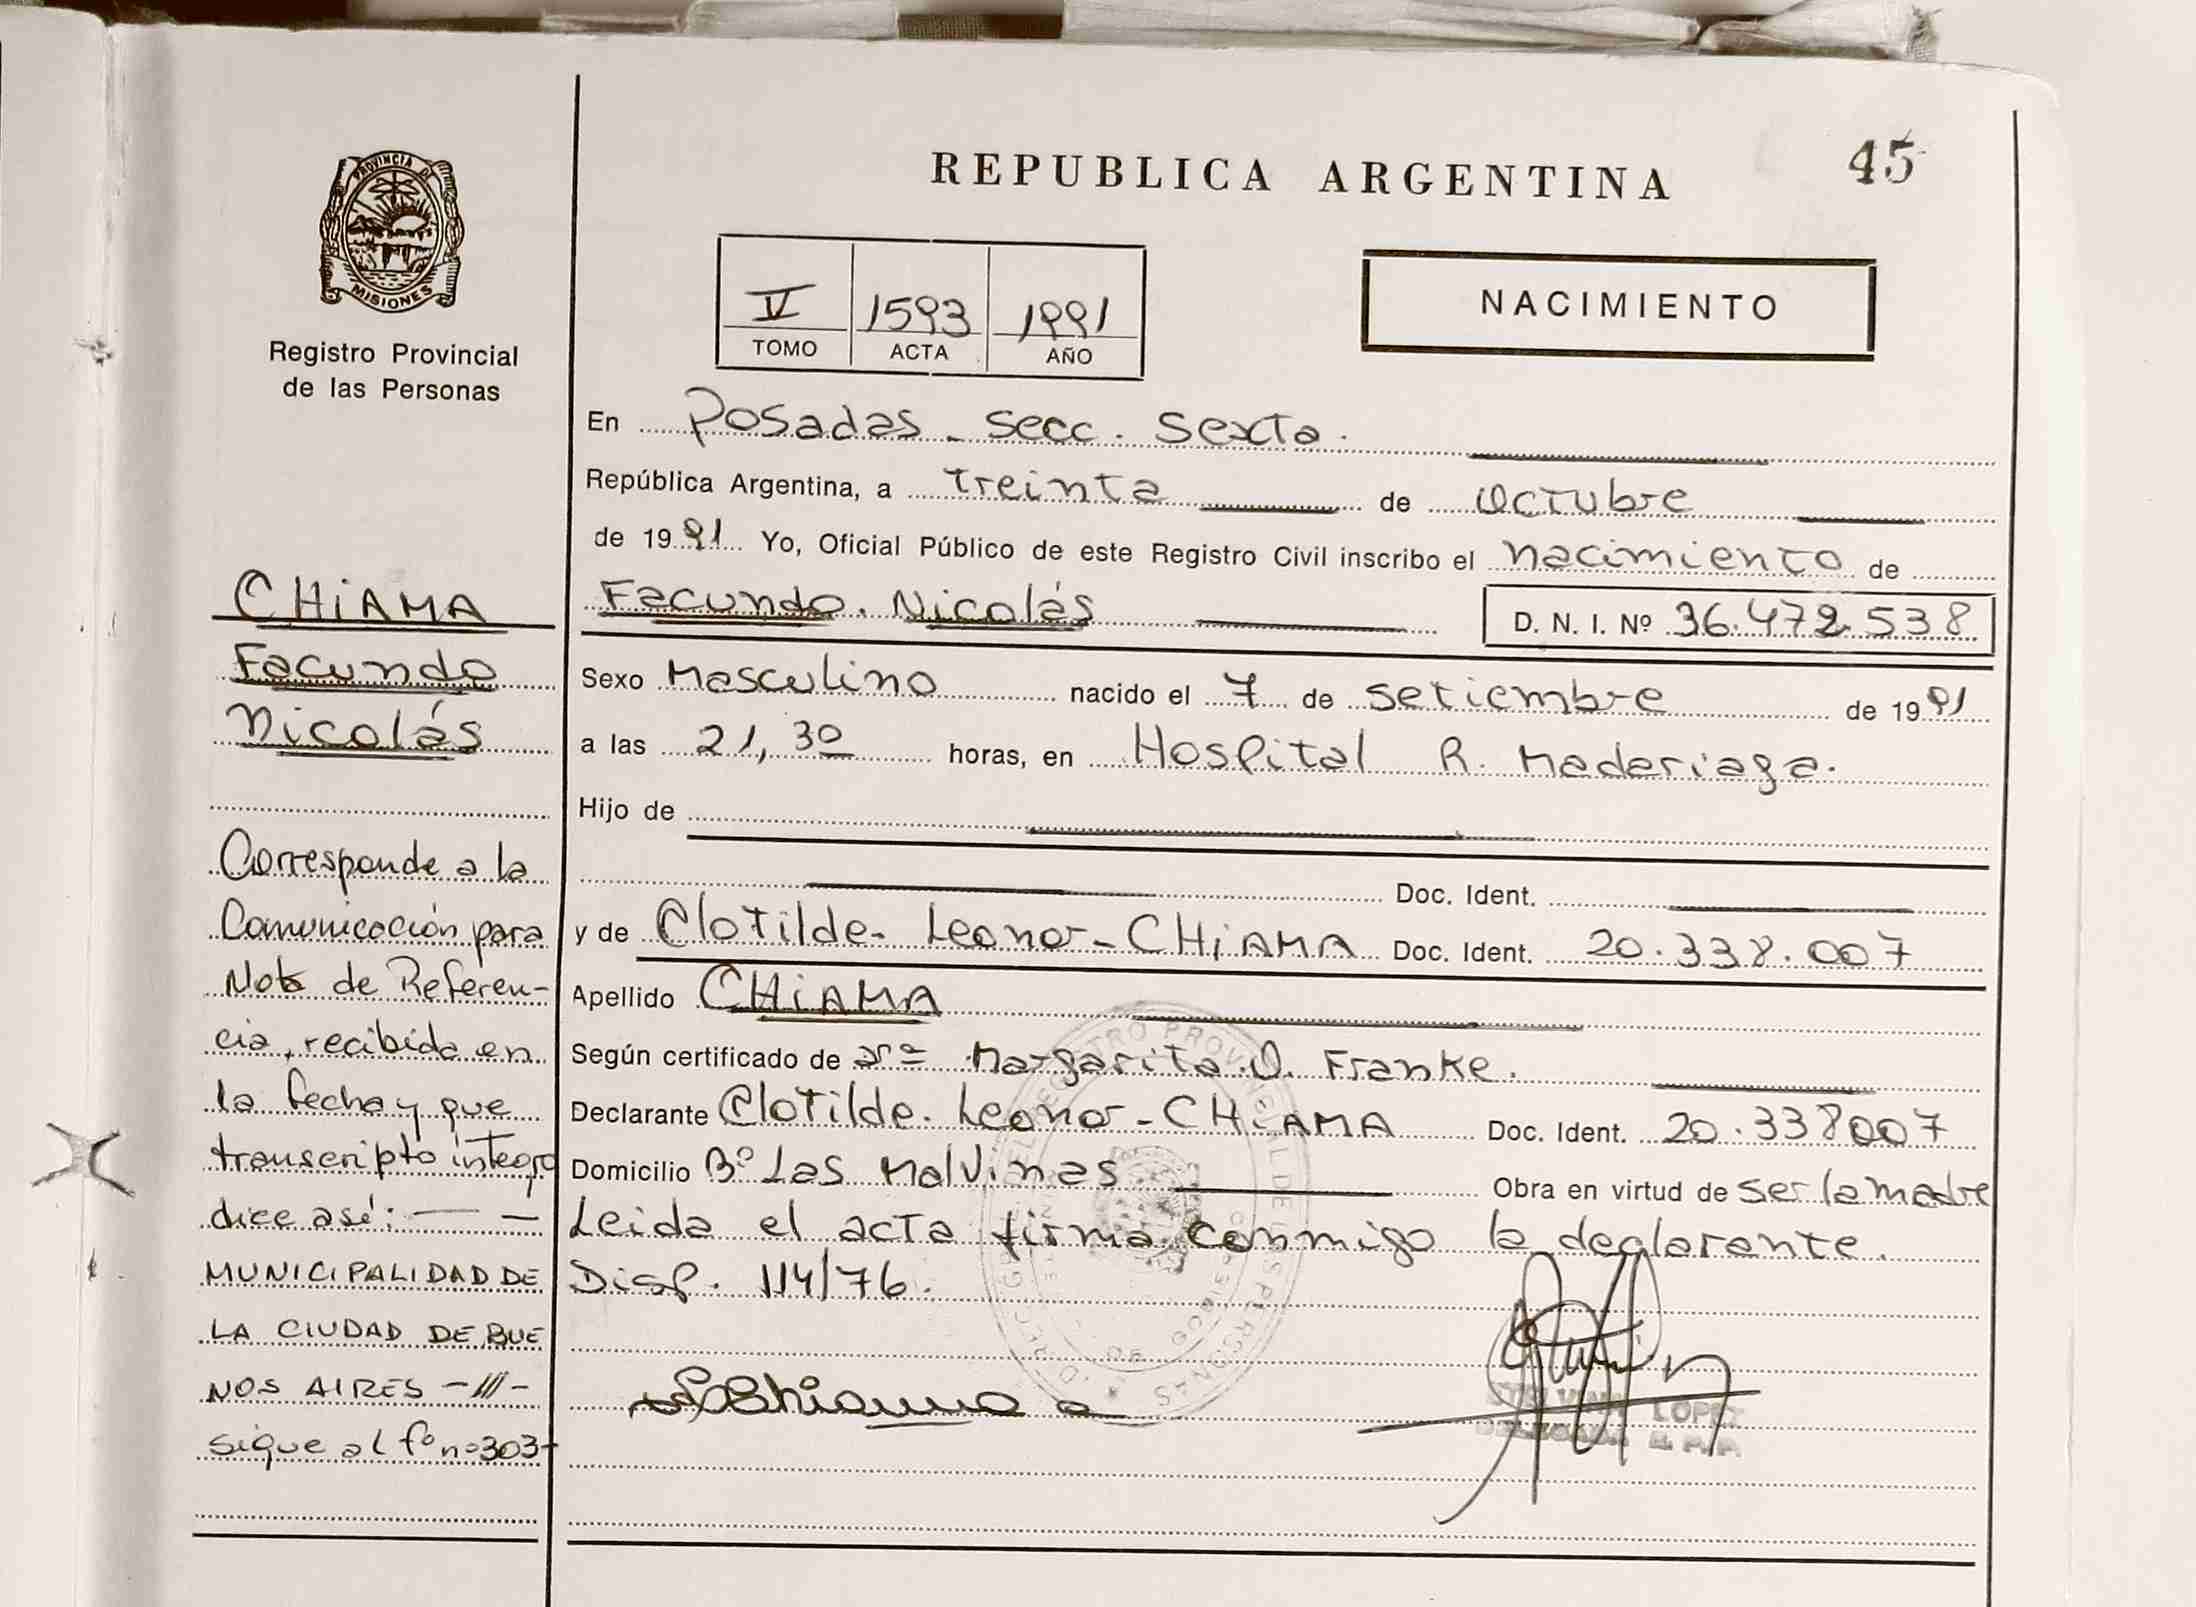 REPUBLICA ARGENTINA
45
PROVINCIA DE
MISIONES
Registro Provincial
de las Personas
V 1593 1991
TOMO ACTA AÑO
NACIMIENTO
En Posadas - secc. Sexta.
República Argentina, a treinta de octubre
de 1991 Yo, Oficial Público de este Registro Civil inscribo el nacimiento de
Facundo. Nicolás D. N. I. Nº 36.472.538
Sexo Masculino nacido el 7 de setiembre de 1991
a las 21,30 horas, en Hospital R. Madariaga.
Hijo de
Doc. Ident.
y de Clotilde. Leonor - CHiAMA Doc. Ident. 20.338.007
Apellido CHiAMA
Según certificado de Margarita. O. Franke.
Declarante Clotilde. Leonor - CHiAMA Doc. Ident. 20.338007
Domicilio Bº Las Malvinas Obra en virtud de ser la madre
Leida el acta firma conmigo la declarante.
Disp. 114/76.
LOPEZ
DELEGADA R. P. P.
CHiAMA
Facundo
Nicolás
Corresponde a la
Comunicación para
Nota de Referen-
cia, recibida en
la fecha y que
transcripto integro
dice así: — —
MUNICIPALIDAD DE
LA CIUDAD DE BUE
NOS AIRES -///-
sigue al fº nº 303-